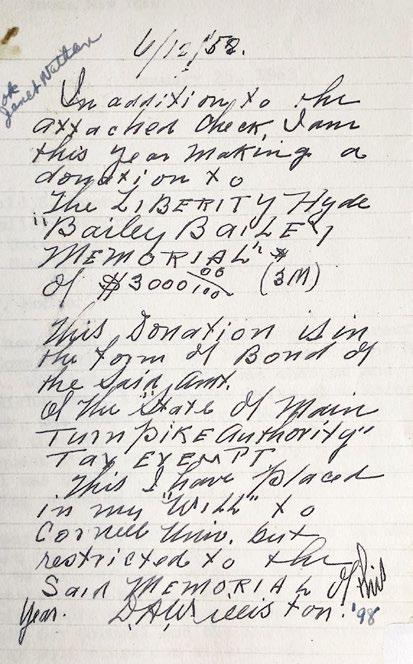 ok
Janet Nathan
6/12/'58.
In addition to the
attached Check, I am
this year making a
donation to
The LIBERITY Hyde
"Bailey BAILEY
MEMORIAL"
of $3000 00/100 ($3M)
This Donation is in
the form of Bond of
the Said Amt.
of the "State of Main
TurnpiKE Authority"
TAX EXEMPT
This I have placed
in my "WiLL" to
Cornell Univ. but
restricted to the
Said MEMORIAL of this
year. D.A. Williston. '98